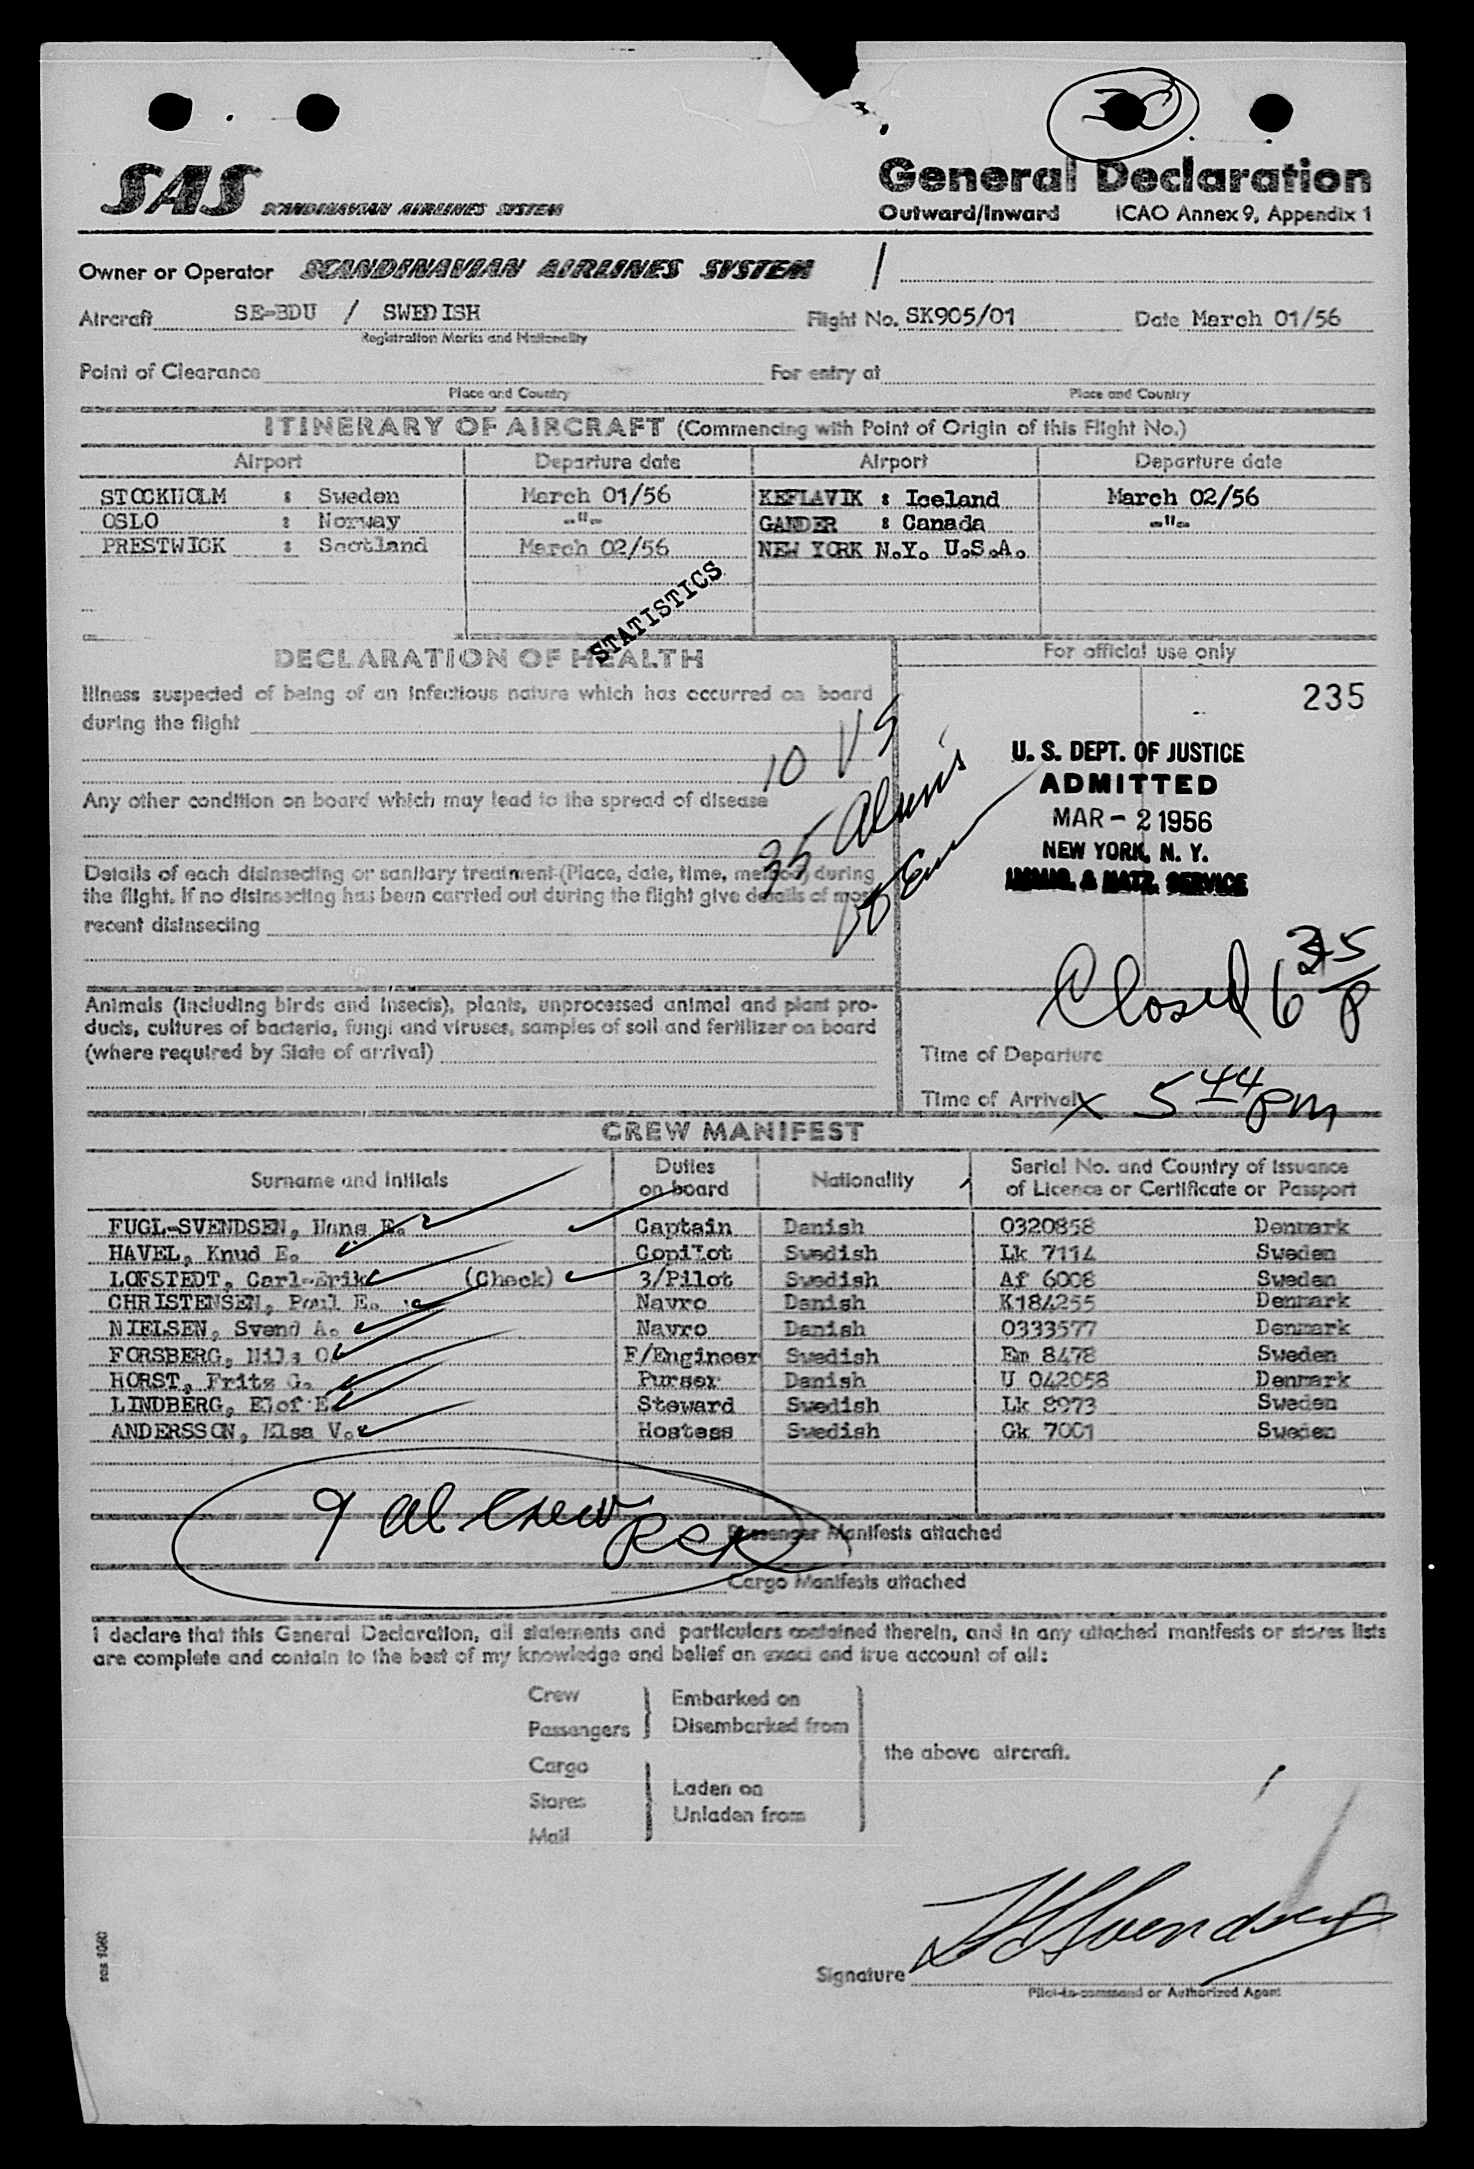 30
SAS SCANDINAVIAN AIRLINES SYSTEM
General Declaration
Outward/Inward ICAO Annex 9, Appendix 1
Owner or Operator SCANDINAVIAN AIRLINES SYSTEM /
Aircraft SE-BDU / SWEDISH Flight No. SK905/01 Date March 01/56
Registration Marks and Nationality
Point of Clearance For entry at
Place and Country Place and Country
ITINERARY OF AIRCRAFT (Commencing with Point of Origin of this Flight No.)
Airport Departure date Airport Departure date
STOCKHOLM : Sweden March 01/56 KEFLAVIK : Iceland March 02/56
OSLO : Norway -"- GANDER : Canada -"-
PRESTWICK : Scotland March 02/56 NEW YORK N.Y. U.S.A.
STATISTICS
DECLARATION OF HEALTH
For official use only
Illness suspected of being of an infectious nature which has occurred on board
during the flight
235
10 US
35 Aliens
U. S. DEPT. OF JUSTICE
ADMITTED
MAR - 2 1956
NEW YORK, N. Y.
IMMIG. & NATZ. SERVICE
Any other condition on board which may lead to the spread of disease
Details of each disinsecting or sanitary treatment (Place, date, time, method) during
the flight. If no disinsecting has been carried out during the flight give details of most
recent disinsecting
Closed 6 35 P
Animals (including birds and insects), plants, unprocessed animal and plant pro-
ducts, cultures of bacteria, fungi and viruses, samples of soil and fertilizer on board
(where required by State of arrival)
Time of Departure
Time of Arrival x 5 44 pm
CREW MANIFEST
Surname and initials Duties on board Nationality Serial No. and Country of Issuance of Licence or Certificate or Passport
FUGL-SVENDSEN, Hans E. Captain Danish 0320858 Denmark
HAVEL, Knud E. Copilot Swedish Lk 7114 Sweden
LOFSTEDT, Carl-Erik (Check) 3/Pilot Swedish Af 6008 Sweden
CHRISTENSEN, Poul E. Navro Danish K184255 Denmark
NIELSEN, Svend A. Navro Danish 0333577 Denmark
FORSBERG, Nils O. F/Engineer Swedish Em 8478 Sweden
HORST, Fritz G. Purser Danish U 042058 Denmark
LINDBERG, Elof E. Steward Swedish Lk 8973 Sweden
ANDERSSON, Elsa V. Hostess Swedish Gk 7001 Sweden
9 al crew
Passenger Manifests attached
Cargo Manifests attached
I declare that this General Declaration, all statements and particulars contained therein, and in any attached manifests or stores lists
are complete and contain to the best of my knowledge and belief an exact and true account of all:
Crew Embarked on
Passengers Disembarked from
the above aircraft.
Cargo
Laden on
Stores
Unladen from
Mail
Signature
Pilot-in-command or Authorized Agent
sas 1060